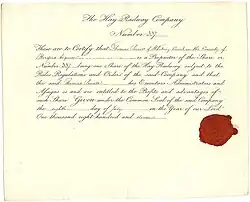 The Hay Railway Company.
Number 337
These are to Certify that Thomas Bennett of Hay in the County of
is a Proprietor of the Share in
Number 337 being one Share of the Hay Railway subject to the
Rules Regulations and Orders of the said Company and that
the said Thomas Executors Administrators and
Assigns is and are entitled to the Profits and advantages of
such Share Given under the Common Seal of the said Company
the day of July in the Year of our Lord
One thousand eight hundred and